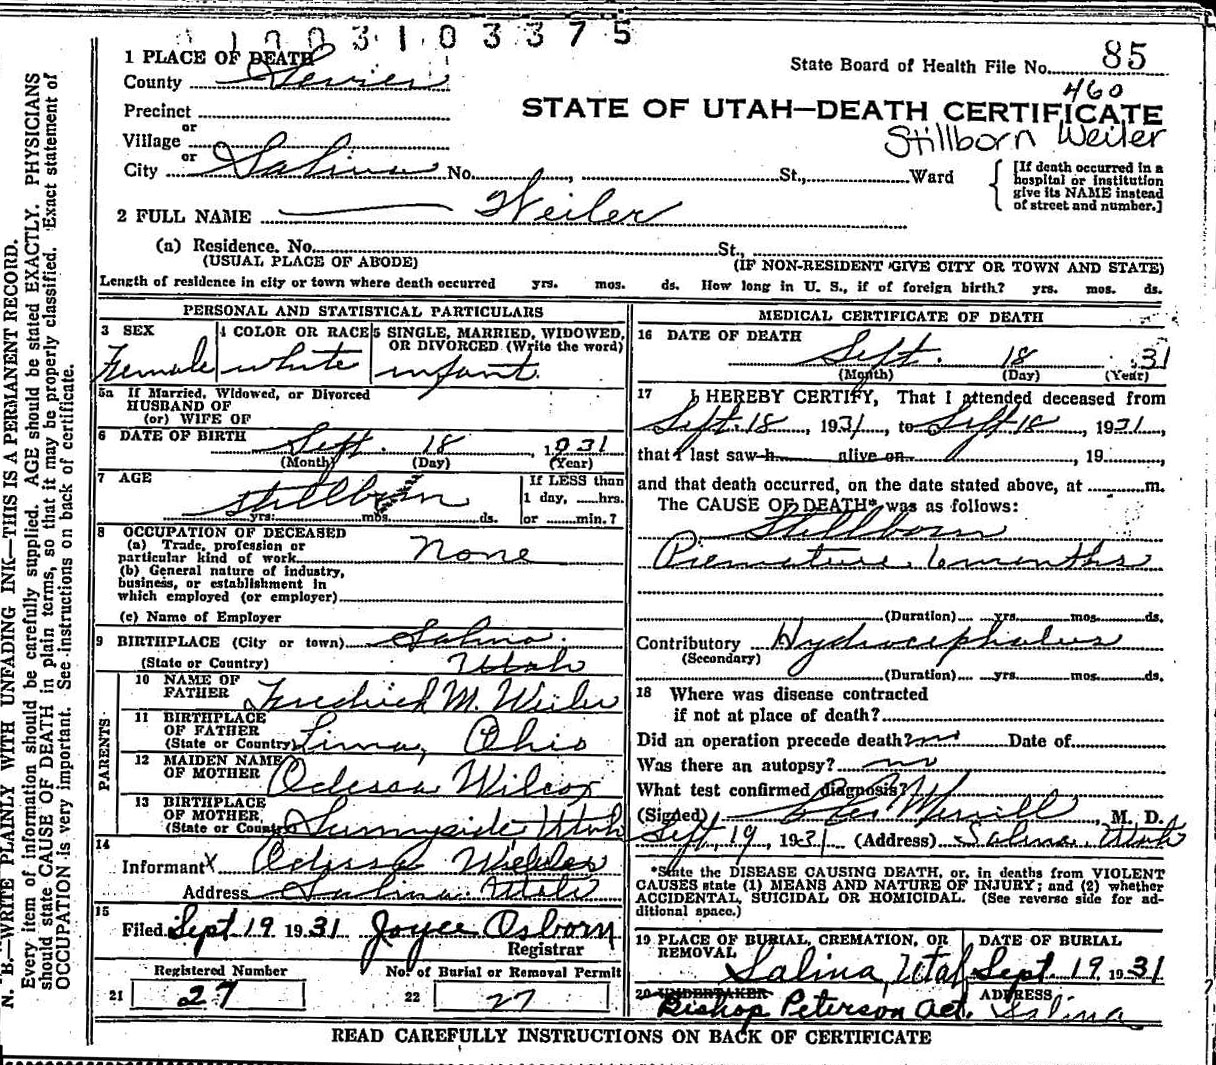 1003103375
1 PLACE OF DEATH
State Board of Health File No. 85
County Sevier
460
Precinct
STATE OF UTAH—DEATH CERTIFICATE
or
Village
Stillborn Weiler
or
City Salina No. , St., Ward
[If death occurred in a
hospital or institution
give its NAME instead
of street and number.]
2 FULL NAME Weiler
(a) Residence. No. St.,
(USUAL PLACE OF ABODE) (IF NON-RESIDENT GIVE CITY OR TOWN AND STATE)
Length of residence in city or town where death occurred yrs. mos. ds. How long in U. S., if of foreign birth? yrs. mos. ds.
PERSONAL AND STATISTICAL PARTICULARS
3 SEX
Female
4 COLOR OR RACE
white
5 SINGLE, MARRIED, WIDOWED,
OR DIVORCED (Write the word)
infant
5a If Married, Widowed, or Divorced
HUSBAND OF
(or) WIFE OF
6 DATE OF BIRTH
Sept. 18, 1931
(Month) (Day) (Year)
7 AGE
stillborn
yrs. mos. ds.
If LESS than
1 day, hrs.
or min.?
8 OCCUPATION OF DECEASED
(a) Trade, profession or
particular kind of work none
(b) General nature of industry,
business, or establishment in
which employed (or employer)
(c) Name of Employer
9 BIRTHPLACE (City or town) Salina
(State or Country) Utah
PARENTS
10 NAME OF
FATHER Fredrick M. Weiler
11 BIRTHPLACE
OF FATHER
(State or Country) Lima, Ohio
12 MAIDEN NAME
OF MOTHER Odessa Wilcox
13 BIRTHPLACE
OF MOTHER
(State or Country) Sunnyside Utah
14
Informant x Odessa Weiler
Address Salina Utah
15
Filed Sept 19 1931 Joyce Osborn
Registrar
Registered Number No. of Burial or Removal Permit
21 27 22 27
MEDICAL CERTIFICATE OF DEATH
16 DATE OF DEATH
Sept. 18 31
(Month) (Day) (Year)
17 I HEREBY CERTIFY, That I attended deceased from
Sept. 18, 1931, to Sept 18, 1931,
that I last saw h alive on , 19 ,
and that death occurred, on the date stated above, at m.
The CAUSE OF DEATH* was as follows:
Stillborn
Premature 6 months
(Duration) yrs. mos. ds.
Contributory Hydrocephalus
(Secondary)
(Duration) yrs. mos. ds.
18 Where was disease contracted
if not at place of death?
Did an operation precede death? no Date of
Was there an autopsy? no
What test confirmed diagnosis?
(Signed) Merrill, M. D.
Sept, 19, 1931 (Address) Salina, Utah
*State the DISEASE CAUSING DEATH, or, in deaths from VIOLENT
CAUSES state (1) MEANS AND NATURE OF INJURY; and (2) whether
ACCIDENTAL, SUICIDAL OR HOMICIDAL. (See reverse side for ad-
ditional space.)
19 PLACE OF BURIAL, CREMATION, OR
REMOVAL
Salina, Utah
DATE OF BURIAL
Sept. 19 1931
20 UNDERTAKER
Bishop Peterson Act.
ADDRESS
Salina
READ CAREFULLY INSTRUCTIONS ON BACK OF CERTIFICATE
N. B.—WRITE PLAINLY WITH UNFADING INK—THIS IS A PERMANENT RECORD.
Every item of information should be carefully supplied. AGE should be stated EXACTLY. PHYSICIANS
should state CAUSE OF DEATH in plain terms, so that it may be properly classified. Exact statement of
OCCUPATION is very important. See instructions on back of certificate.